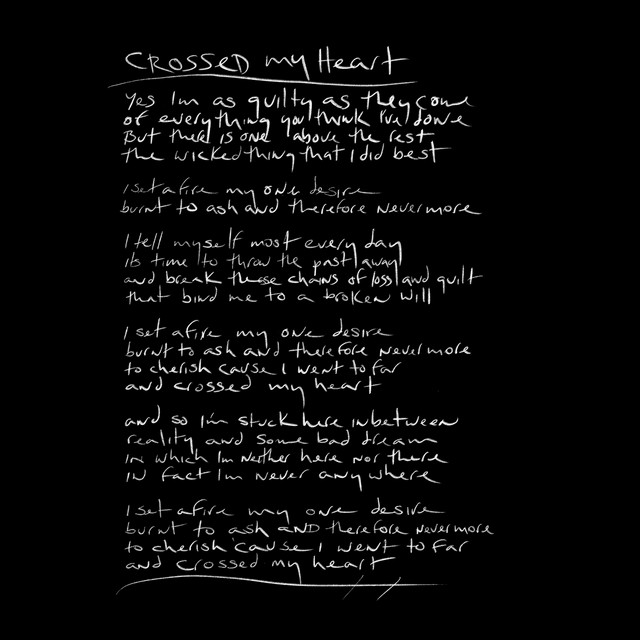 CROSSED my Heart
Yes Im as guilty as they come
of everything you think I've done
But there is one above the rest
the wicked thing that I did best
I set afire my one desire
burnt to ash and therefore nevermore
I tell myself most every day
its time to throw the past away
and break these chains of loss and guilt
that bind me to a broken will
I set afire my one desire
burnt to ash and therefore nevermore
to cherish cause I went to far
and crossed my heart
and so I'm stuck here inbetween
reality and some bad dream
in which Im neither here nor there
IN fact Im never anywhere
I set afire my one desire
burnt to ash AND therefore nevermore
to cherish 'cause I went to far
and crossed my heart